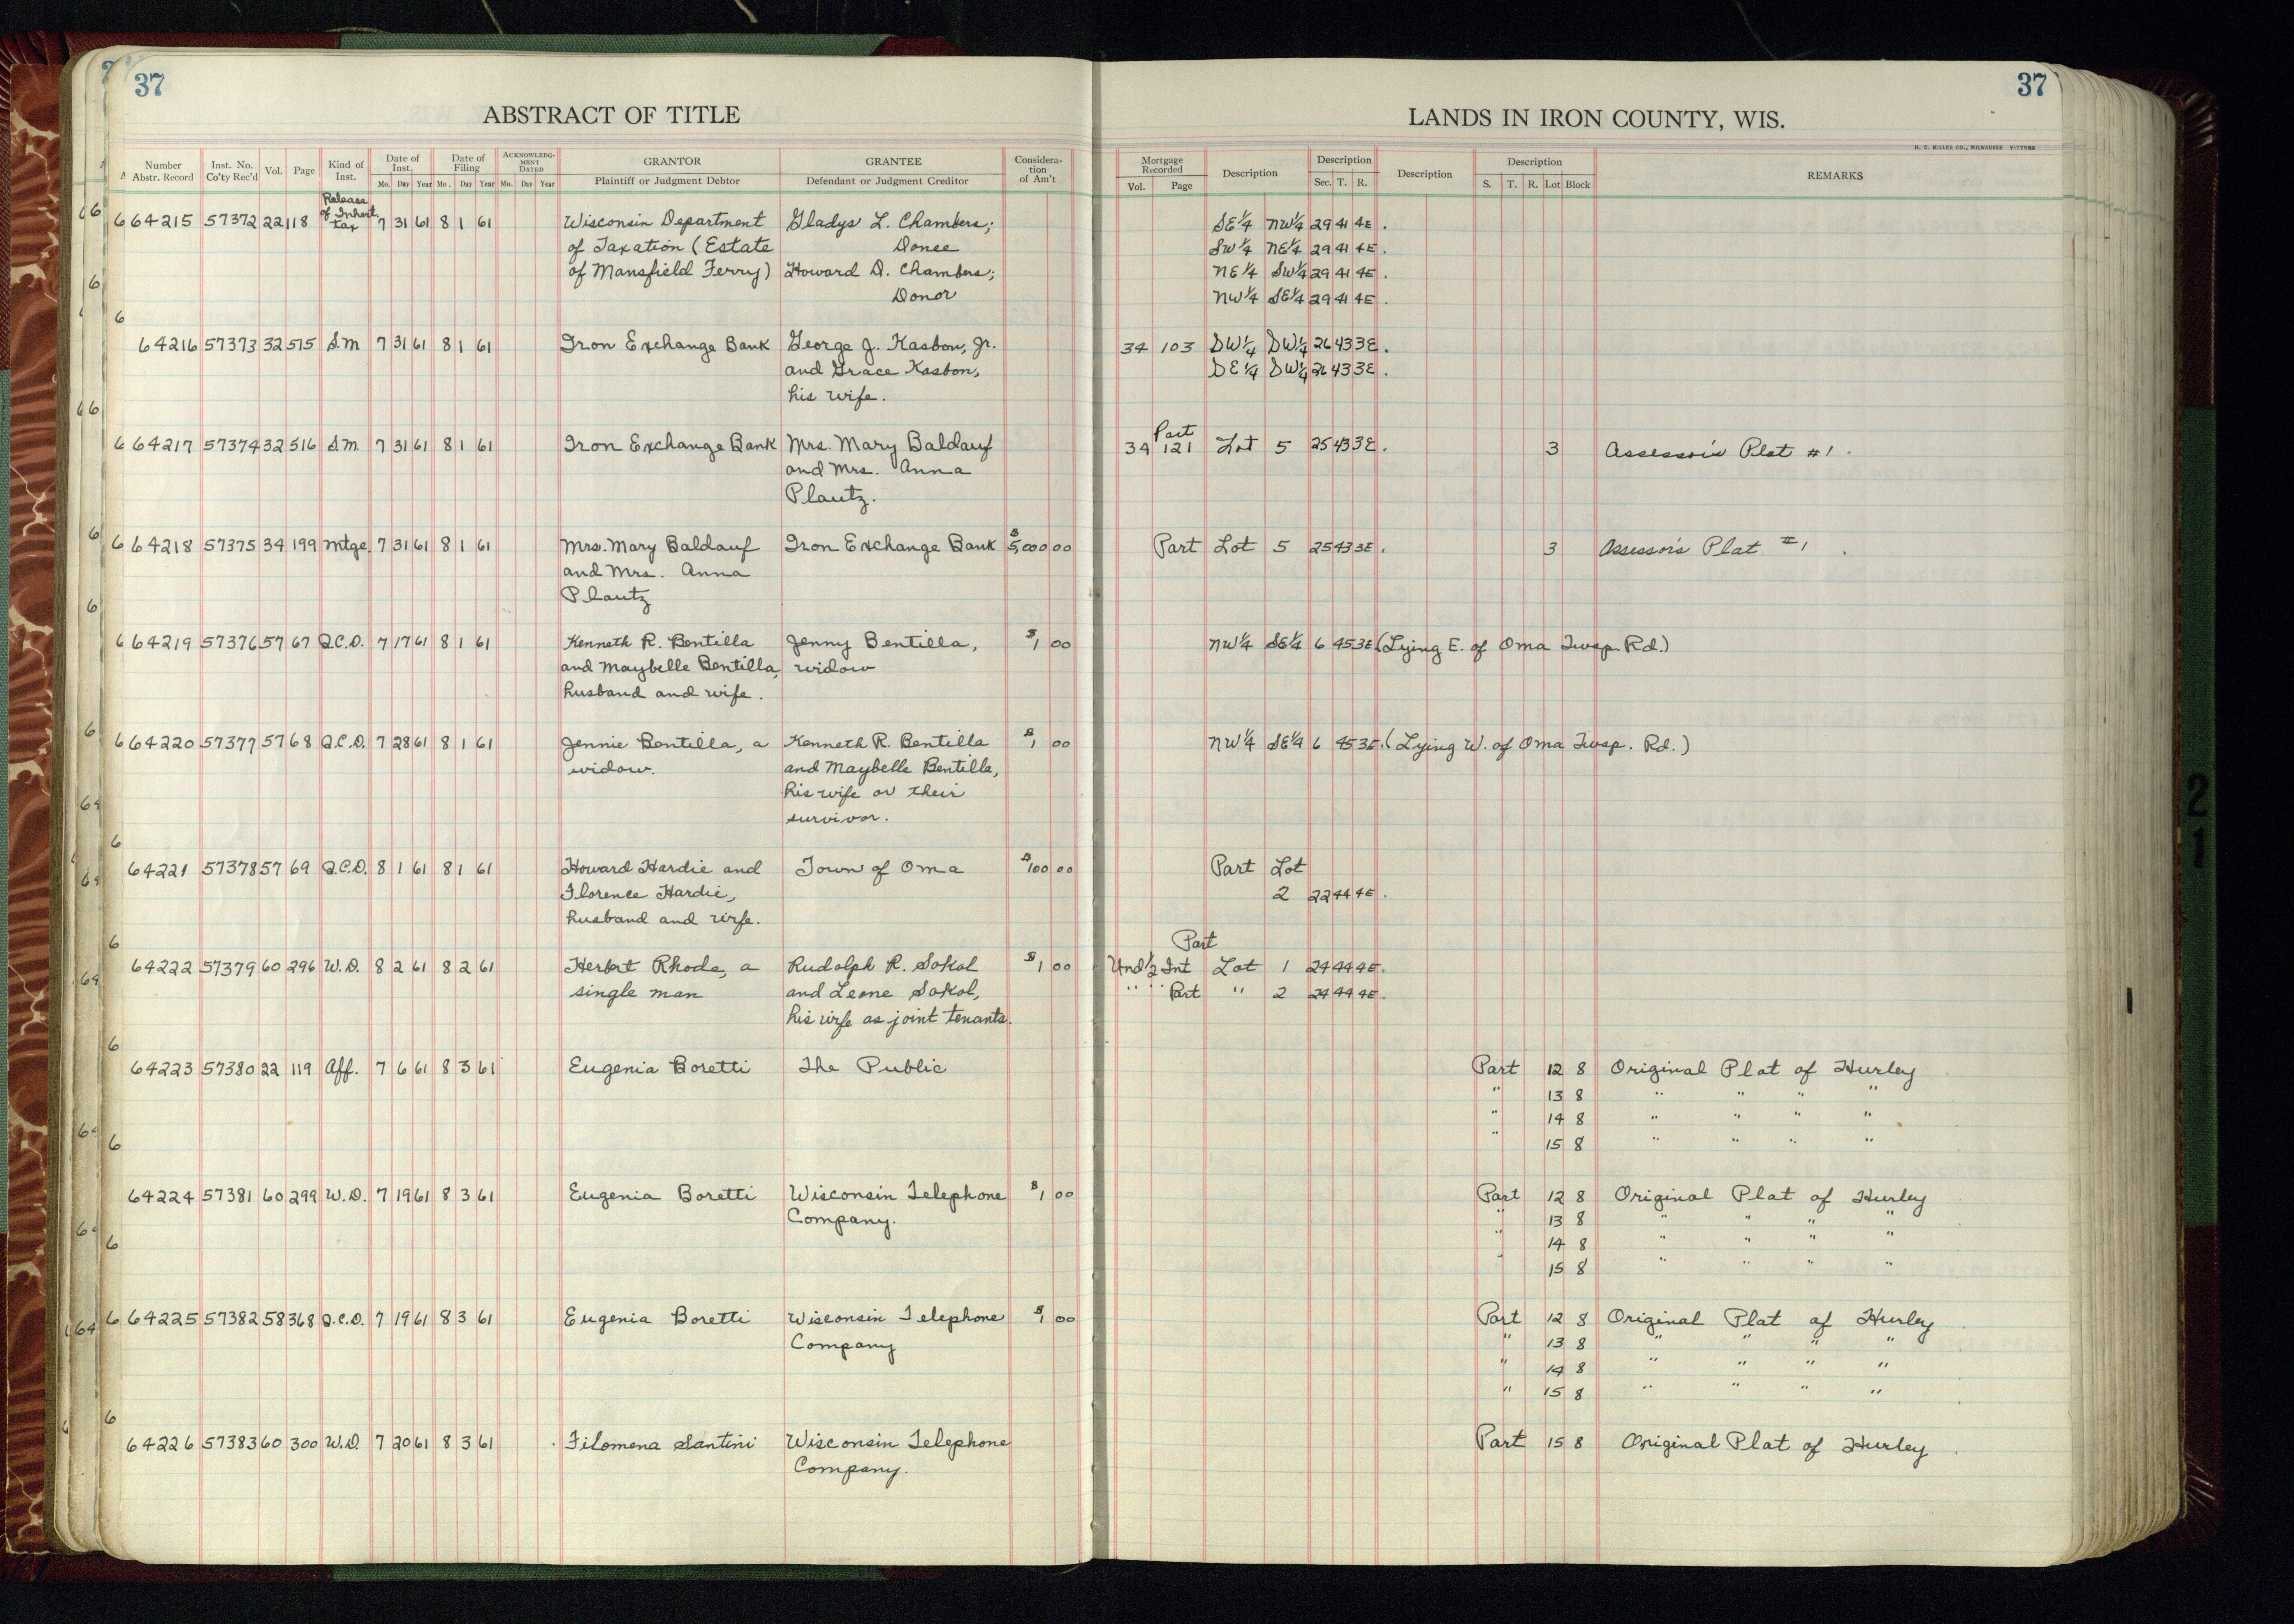 37
37
ABSTRACT OF TITLE
LANDS IN IRON COUNTY, WIS.
H. C. MILLER CO., MILWAUKEE
Number Abstr. Record Inst. No. Co'ty Rec'd Vol. Page Kind of Inst. Date of Inst. Mo. Day Year Date of Filing Mo. Day Year ACKNOWLEDGMENT DATED Mo. Day Year GRANTOR Plaintiff or Judgment Debtor GRANTEE Defendant or Judgment Creditor Consideration of Am't
Mortgage Recorded Vol. Page Description Description Sec. T. R. Description Description S. T. R. Lot Block REMARKS
Release
of Inherit.
tax
64215 57372 22 118 7 31 61 8 1 61 Wisconsin Department Gladys L. Chambers; SE¼ NW¼ 29 41 4E.
of Taxation (Estate Donee SW¼ NE¼ 29 41 4E.
of Mansfield Ferry) Howard D. Chambers; NE¼ SW¼ 29 41 4E.
Donor NW¼ SE¼ 29 41 4E.
64216 57373 32 515 S.M 7 31 61 8 1 61 Iron Exchange Bank George J. Kasbon, Jr. 34 103 SW¼ SW¼ 26 43 3E.
and Grace Kasbon, SE¼ SW¼ 26 43 3E.
his wife.
Part
64217 57374 32 516 S.M. 7 31 61 8 1 61 Iron Exchange Bank Mrs. Mary Baldauf 34 121 Lot 5 25 43 3E. 3 Assessor's Plat #1.
and Mrs. Anna
Plautz.
64218 57375 34 199 Mtge. 7 31 61 8 1 61 Mrs. Mary Baldauf Iron Exchange Bank $5,000 00 Part Lot 5 25 43 3E. 3 Assessor's Plat #1.
and Mrs. Anna
Plautz
64219 57376 57 67 Q.C.D. 7 17 61 8 1 61 Kenneth R. Bentilla Jenny Bentilla, $1 00 NW¼ SE¼ 6 45 3E (Lying E. of Oma Twsp. Rd.)
and Maybelle Bentilla, widow
husband and wife.
64220 57377 57 68 Q.C.D. 7 28 61 8 1 61 Jennie Bentilla, a Kenneth R. Bentilla $1 00 NW¼ SE¼ 6 45 3E. (Lying W. of Oma Twsp. Rd.)
widow. and Maybelle Bentilla,
his wife or their
survivor.
64221 57378 57 69 Q.C.D. 8 1 61 8 1 61 Howard Hardie and Town of Oma $100 00 Part Lot
Florence Hardie, 2 22 44 4E.
husband and wife.
Part
64222 57379 60 296 W.D. 8 2 61 8 2 61 Herbert Rhode, a Rudolph R. Sokol $1 00 Und ½ Int Lot 1 24 44 4E.
single man and Leone Sokol, " " Part " 2 24 44 4E.
his wife as joint tenants.
64223 57380 22 119 Aff. 7 6 61 8 3 61 Eugenia Boretti The Public Part 12 8 Original Plat of Hurley
" 13 8 " " " "
" 14 8 " " " "
" 15 8 " " " "
64224 57381 60 299 W.D. 7 19 61 8 3 61 Eugenia Boretti Wisconsin Telephone $1 00 Part 12 8 Original Plat of Hurley
Company. " 13 8 " " " "
" 14 8 " " " "
" 15 8 " " " "
64225 57382 58 368 Q.C.D. 7 19 61 8 3 61 Eugenia Boretti Wisconsin Telephone $1 00 Part 12 8 Original Plat of Hurley
Company " 13 8 " " " "
" 14 8 " " " "
" 15 8 " " " "
64226 57383 60 300 W.D. 7 20 61 8 3 61 Filomena Santini Wisconsin Telephone Part 15 8 Original Plat of Hurley
Company.
21